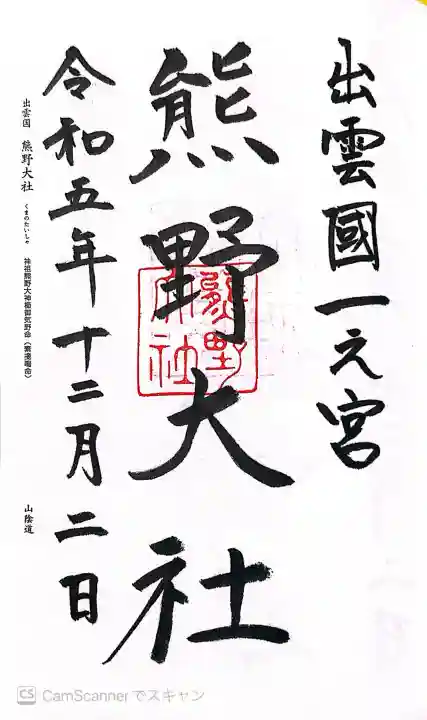 出雲國一之宮
熊野大社
熊野大社
令和五年十二月二日
出雲国 熊野大社 くまのたいしゃ 神祖熊野大神櫛御気野命（素戔嗚尊）
山陰道
CS CamScannerでスキャン